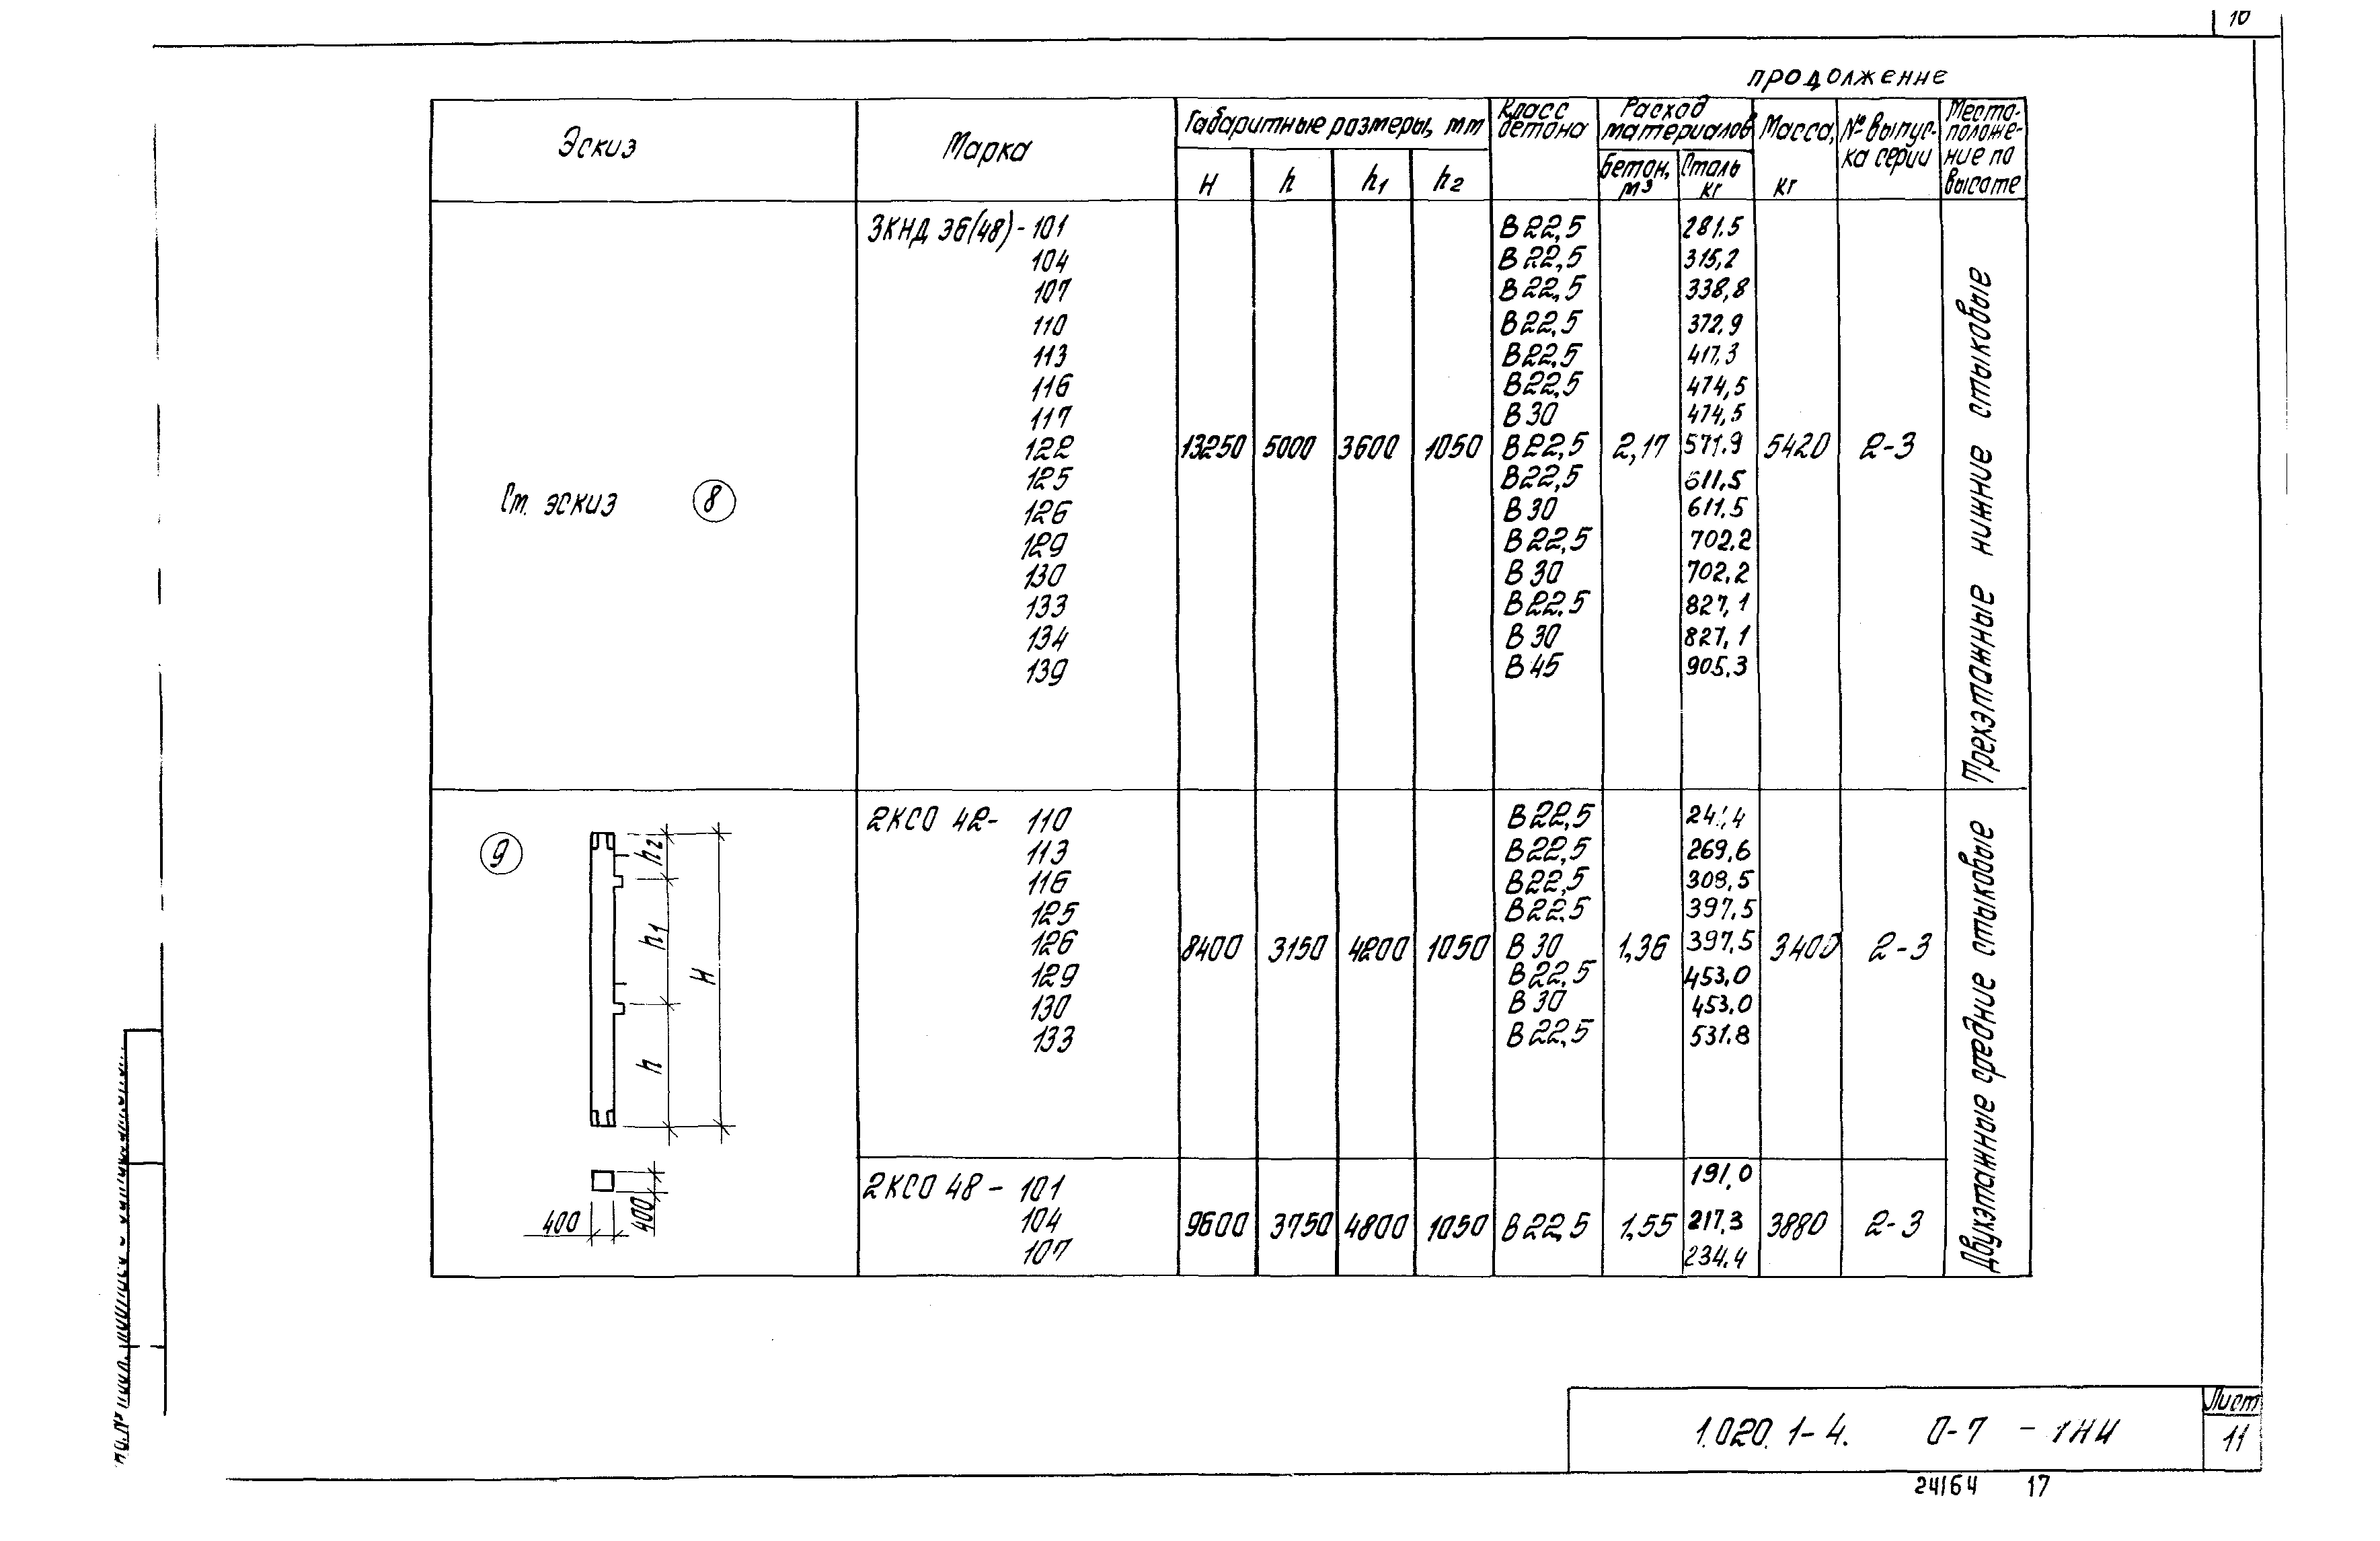 10
продолжение
Эскиз Марка Габаритные размеры, мм Класс бетона Расход материалов Масса, кг № выпуска серии Местоположение по высоте
H h h1 h2 Бетон, м³ Сталь кг
3КНД 36(48)-101 В22,5 281.5
104 В22,5 315,2
107 В22,5 338,8
110 В22,5 372,9
113 В22,5 417,3
116 В22,5 474,5
117 В30 474,5
122 13250 5000 3600 1050 В22,5 2,17 571.9 5420 2-3
125 В22,5 611,5
См. эскиз 8 126 В30 611.5
129 В22,5 702.2
130 В30 702.2
133 В22.5 827,1
134 В30 827,1
139 В45 905.3
Трехэтажные нижние стыковые
9
2КСО 42- 110 В22,5
113 В22,5 269,6
116 В22,5 309,5
125 В22.5 397,5
126 8400 3150 4200 1050 В30 1,36 397,5 3400 2-3
129 В22,5 453,0
130 В30 453,0
133 В22,5 531.8
h2
h1
H
h
400
400
2КСО 48 - 101 191,0
104 9600 3750 4800 1050 В22,5 1,55 217,3 3880 2-3
107 234,4
Двухэтажные средние стыковые
1.020.1-4. 0-7 - 1НИ
Лист
11
24164 17